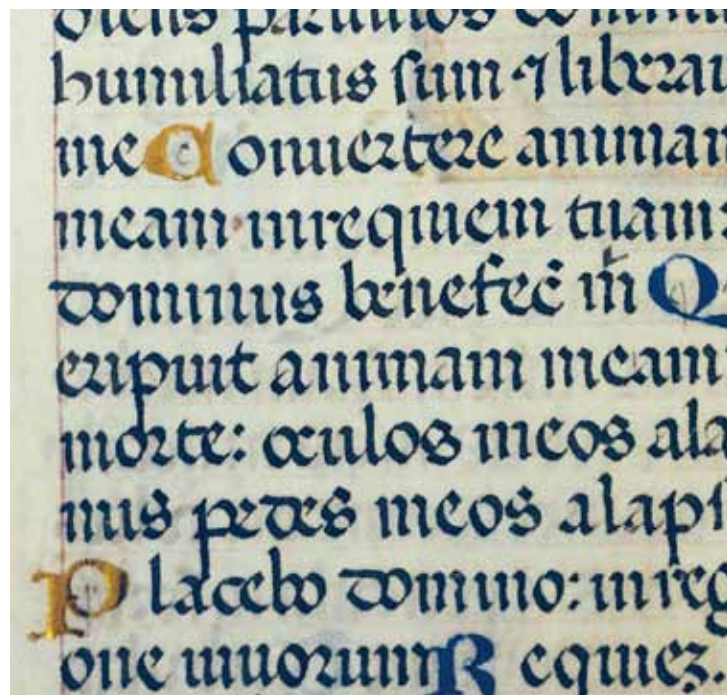 diens paruulos domin
humiliatus sum ⁊ liberaui
me Conuertere animam
meam inrequiem tuam:
dominus benefeċ m̄ Q
eripuit animam meam
morte: oculos meos ala
mis pedes meos alapſ
Placebo domino: inreg
one uiuorum Requiez.